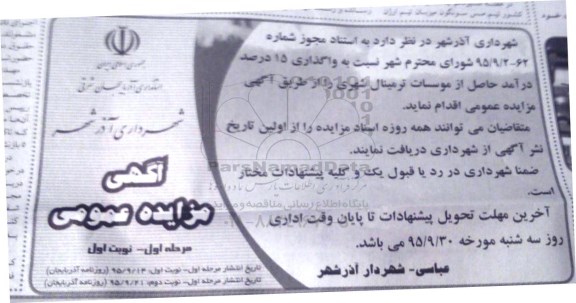 جمهوری اسلامی ایران
استانداری آذربایجان شرقی
شهرداری آذرشهر
آگهی
مزایده عمومی
مرحله اول- نوبت اول
تاریخ انتشار مرحله اول- نوبت اول: ۹۵/۹/۱۴ (روزنامه آذربایجان)
تاریخ انتشار مرحله اول- نوبت دوم: ۹۵/۹/۲۱ (روزنامه آذربایجان)
شهرداری آذرشهر در نظر دارد به استناد مجوز شماره
۹۵/۹/۲-۶۲ شورای محترم شهر نسبت به واگذاری ۱۵ درصد
درآمد حاصل از موسسات ترمینال شهری را از طریق آگهی
مزایده عمومی اقدام نماید.
متقاضیان می توانند همه روزه اسناد مزایده را از اولین تاریخ
نشر آگهی از شهرداری دریافت نمایند.
ضمنا شهرداری در رد یا قبول یک و کلیه پیشنهادات مختار
است.
آخرین مهلت تحویل پیشنهادات تا پایان وقت اداری
روز سه شنبه مورخه ۹۵/۹/۳۰ می باشد.
عباسی- شهردار آذرشهر
ParsNamadData
پایگاه اطلاع رسانی مناقصه و مزایده